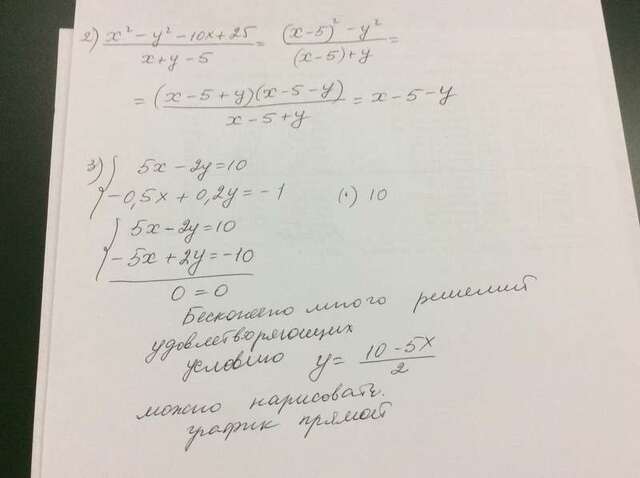 2) (x² - y² - 10x + 25)/(x + y - 5) = ((x-5)² - y²)/((x-5)+y) =
= ((x-5+y)(x-5-y))/(x-5+y) = x-5-y
3) { 5x - 2y = 10
-0,5x + 0,2y = -1 (·) 10
{ 5x - 2y = 10
-5x + 2y = -10
0 = 0
Бесконечно много решений
удовлетворяющих
условию y = (10-5x)/2
можно нарисовать.
график прямой